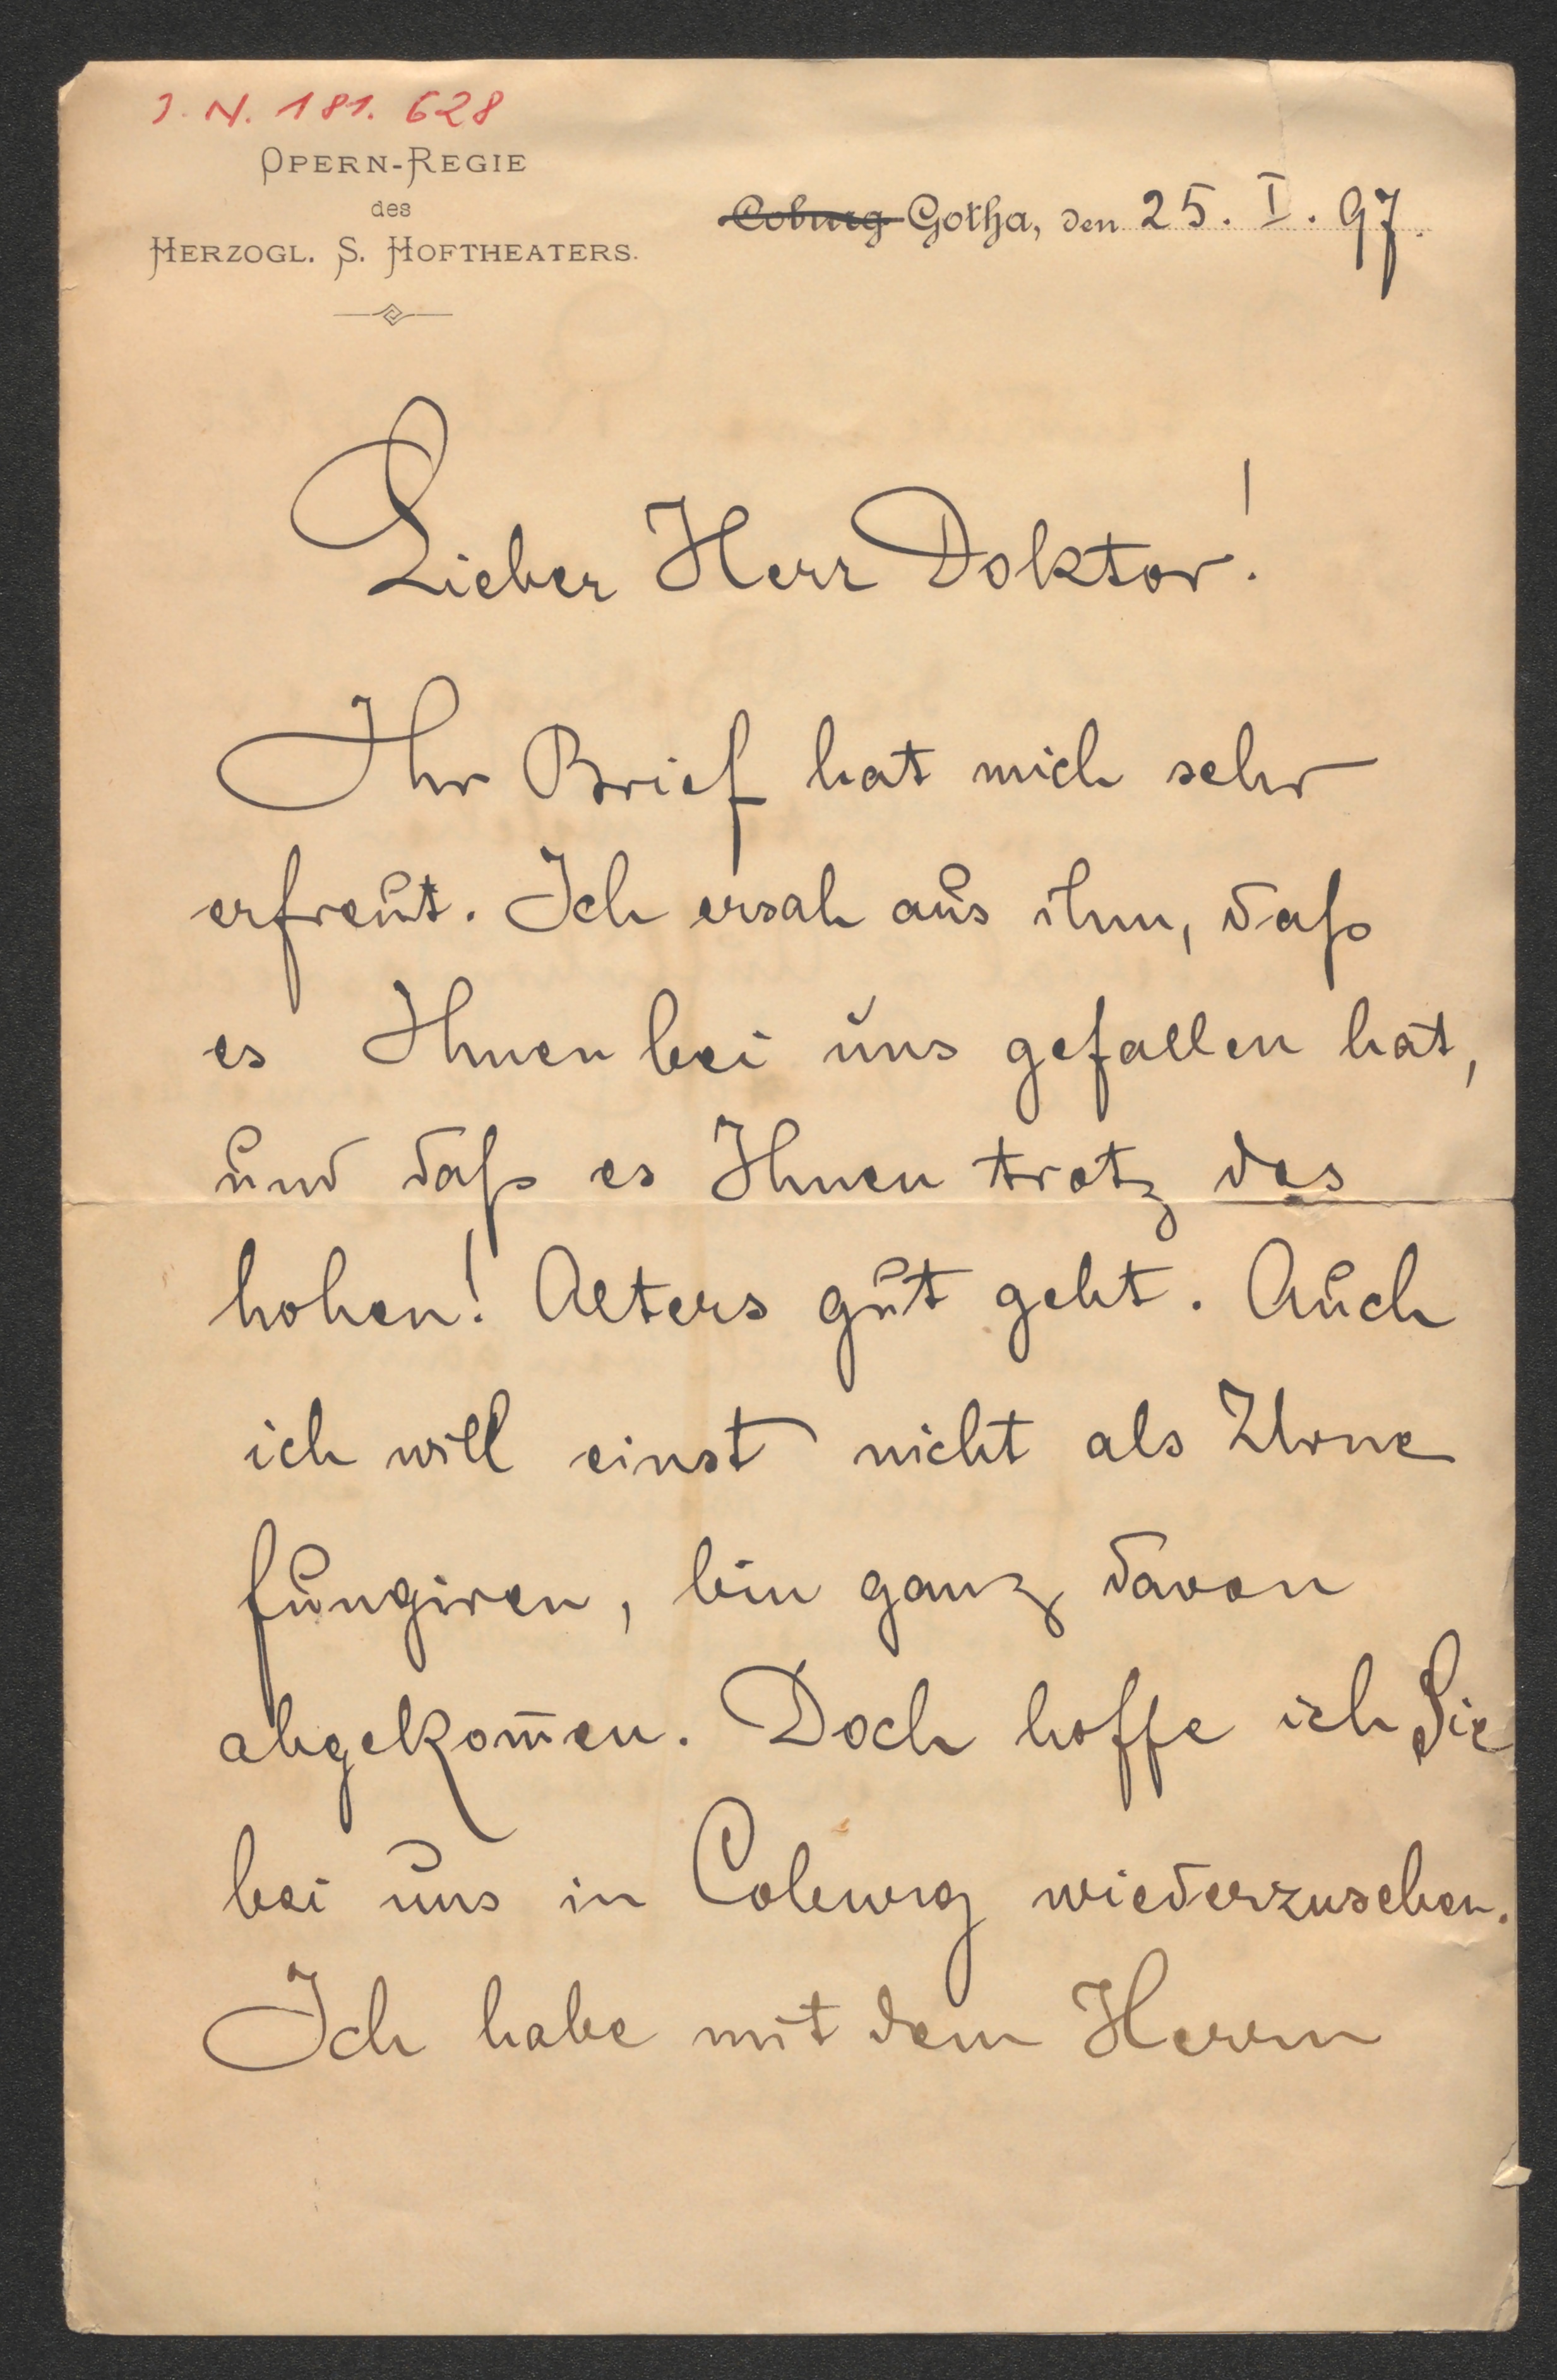 J. N. 181. 628
OPERN-REGIE
des
HERZOGL. S. HOFTHEATERS.
Coburg Gotha, den 25. I. 97.
Lieber Herr Doktor!
Ihr Brief hat mich sehr
erfreut. Ich ersah aus ihm, daß
es Ihnen bei uns gefallen hat,
und daß es Ihnen trotz des
hohen! Alters gut geht. Auch
ich will einst nicht als Urne
fungiren, bin ganz davon
abgekom̄en. Doch hoffe ich Sie
bei uns in Coburg wiederzusehen.
Ich habe mit dem Herrn